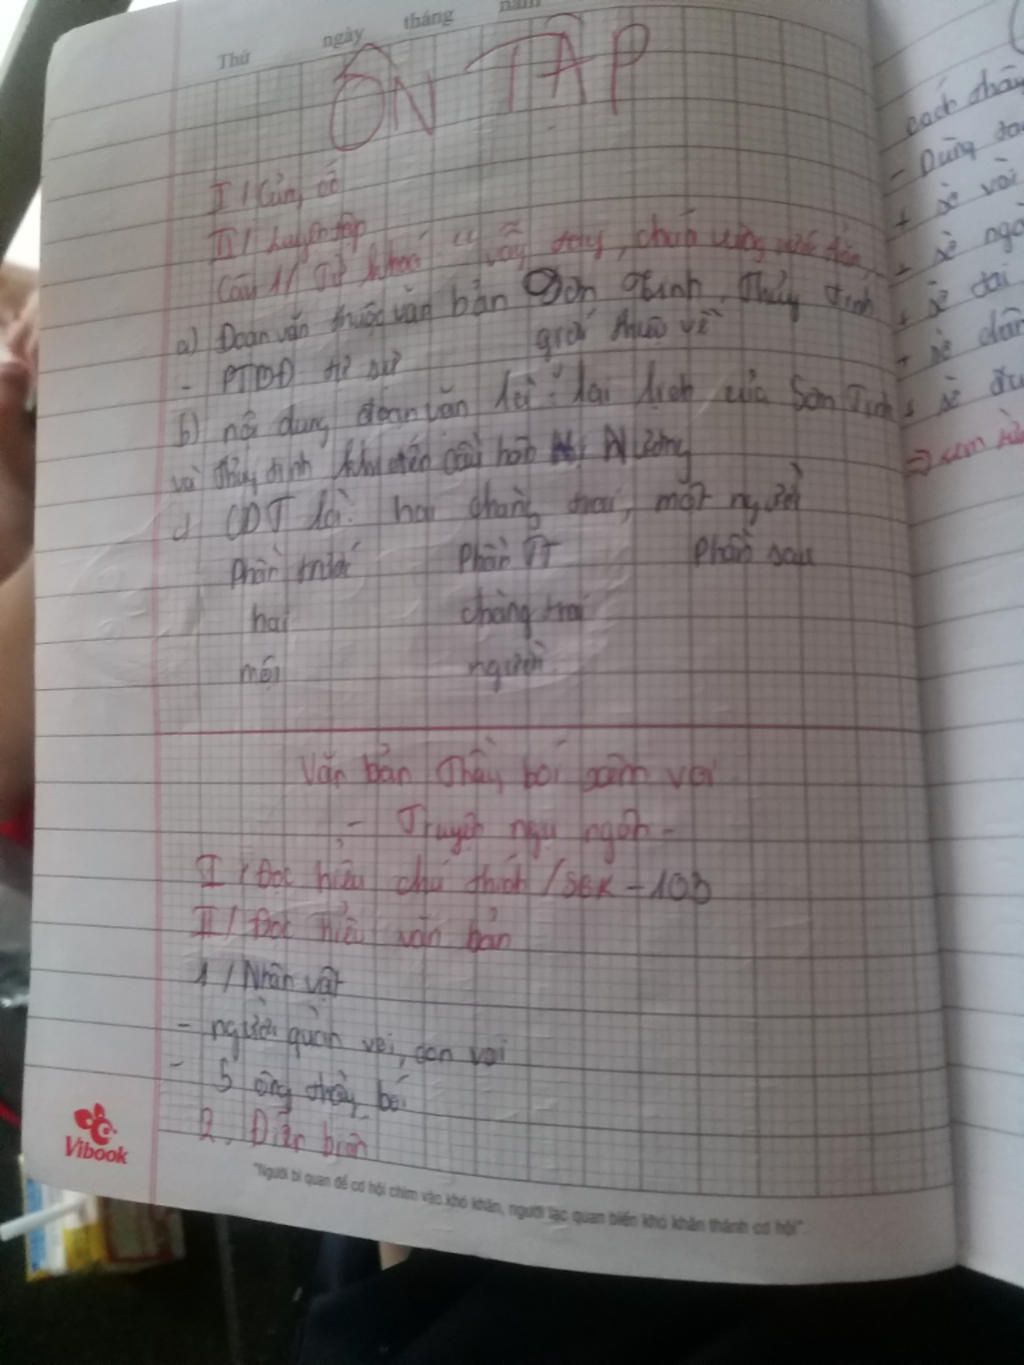 Thứ ngày tháng năm
ÔN TẬP
I / Củng cố
II / Luyện tập
Câu 1 / Từ khoá " vẫy tay,
a) Đoạn văn thuộc văn bản Sơn Tinh, Thủy Tinh
- PTBĐ tự sự
b) nội dung đoạn văn là: lai lịch của Sơn Tinh
và Thủy tinh khi đến cầu hôn Mị Nương
c) CDT là: hai chàng trai, một người
Phần trước Phần TT Phần sau
hai chàng trai
một người
Văn bản Thầy bói xem voi
- Truyện ngụ ngôn -
I / Đọc hiểu chú thích / SGK - 103
II / Đọc hiểu văn bản
1 / Nhân vật
- người quản voi, con voi
- 5 ông thầy bói
2. Diễn biến
Vibook
"Người bi quan để cơ hội chìm vào khó khăn, người lạc quan biến khó khăn thành cơ hội".
cách thầy
- Dùng tay
+ sờ vòi
+ sờ ngà
+ sờ tai
+ sờ chân
+ sờ đuôi